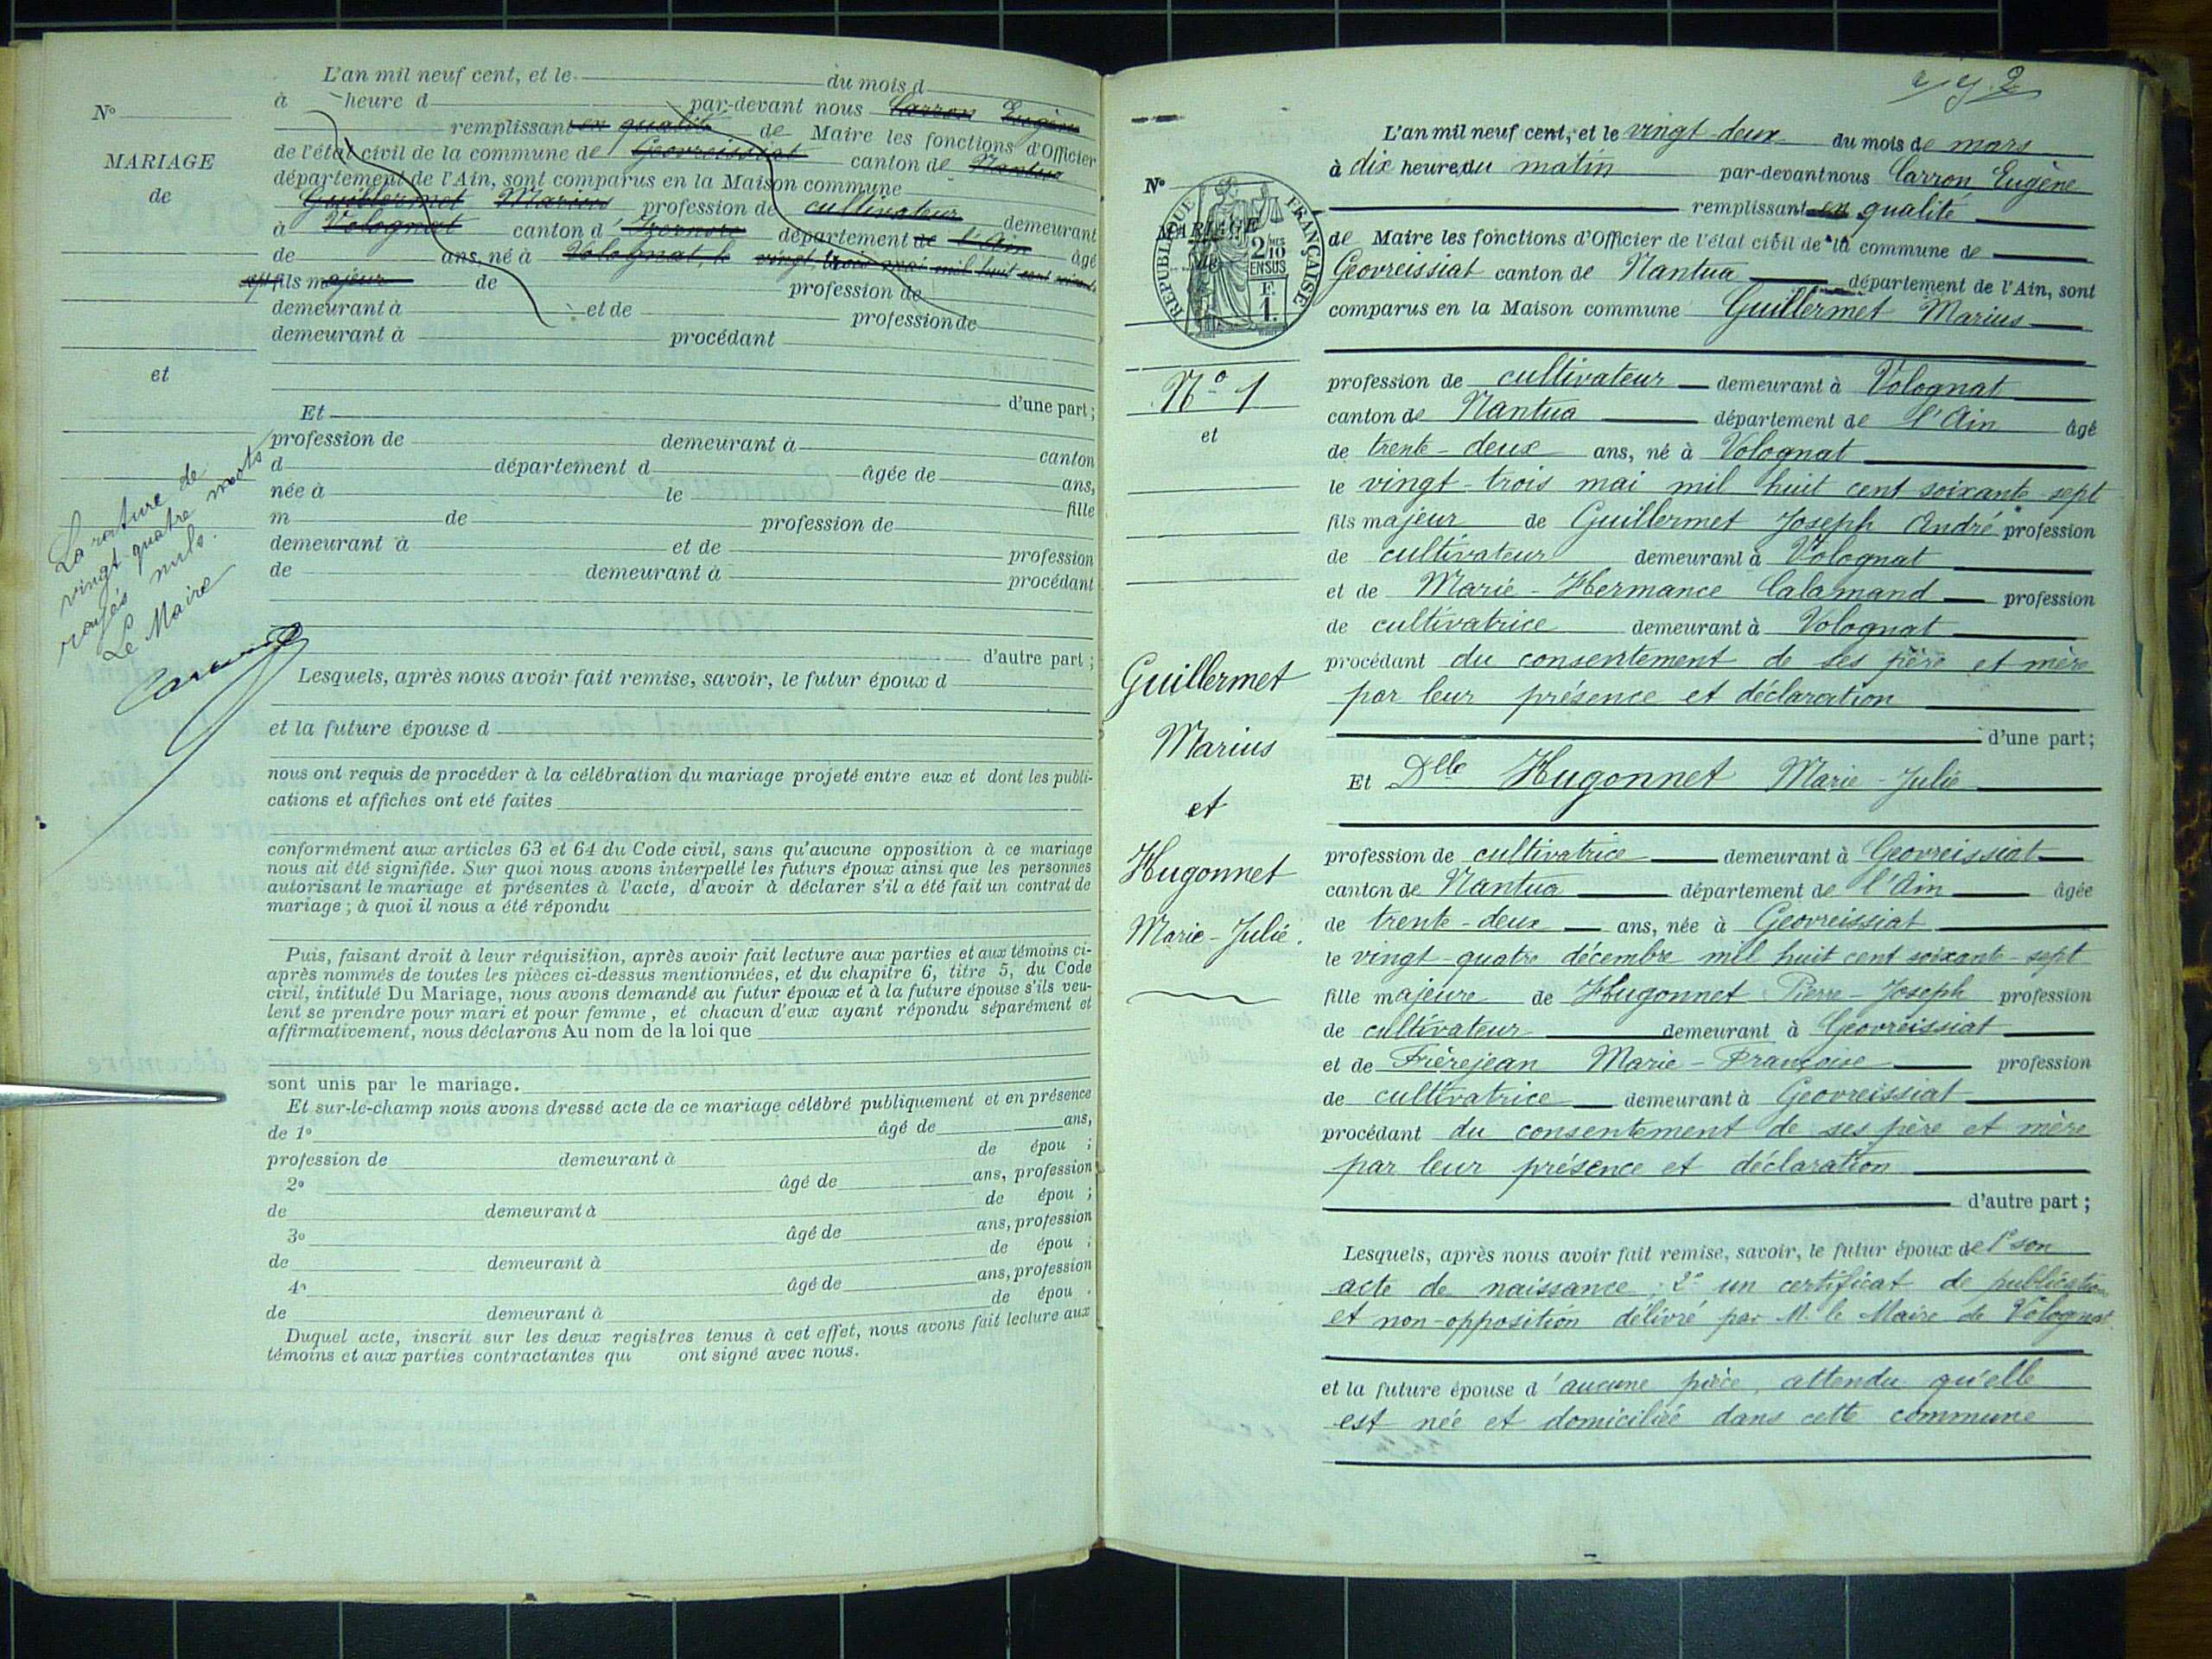 L'an mil neuf cent, et le du mois d
à heure d par-devant nous Carron Eugène
remplissant en qualité de Maire les fonctions d'Officier
de l'état civil de la commune de Geovreissiat canton de Nantua
département de l'Ain, sont comparus en la Maison commune
Guillermet Marius profession de cultivateur demeurant
à Volognat canton d'Izernore département de l'Ain âgé
de ans, né à Volognat, le vingt trois mai mil huit cent soixante
sept fils majeur de profession de
demeurant à et de profession de
demeurant à procédant
d'une part ;
Et
profession de demeurant à canton
d département d âgée de ans,
née à le fille
m de profession de
demeurant à et de profession
de demeurant à procédant
d'autre part ;
Lesquels, après nous avoir fait remise, savoir, le futur époux d
et la future épouse d
nous ont requis de procéder à la célébration du mariage projeté entre eux et dont les publi-
cations et affiches ont eté faites
conformément aux articles 63 et 64 du Code civil, sans qu'aucune opposition à ce mariage
nous ait été signifiée. Sur quoi nous avons interpellé les futurs époux ainsi que les personnes
autorisant le mariage et présentes à l'acte, d'avoir à déclarer s'il a été fait un contrat de
mariage ; à quoi il nous a été répondu
Puis, faisant droit à leur réquisition, après avoir fait lecture aux parties et aux témoins ci-
après nommés de toutes les pièces ci-dessus mentionnées, et du chapitre 6, titre 5, du Code
civil, intitulé Du Mariage, nous avons demandé au futur époux et à la future épouse s'ils veu-
lent se prendre pour mari et pour femme, et chacun d'eux ayant répondu séparément et
affirmativement, nous déclarons Au nom de la loi que
sont unis par le mariage.
Et sur-le-champ nous avons dressé acte de ce mariage célébré publiquement et en présence
de 1° âgé de ans,
profession de demeurant à de épou ;
2° âgé de ans, profession
de demeurant à de épou ;
3° âgé de ans, profession
de demeurant à de épou ;
4° âgé de ans, profession
de demeurant à de épou .
Duquel acte, inscrit sur les deux registres tenus à cet effet, nous avons fait lecture aux
témoins et aux parties contractantes qui ont signé avec nous.
N°
MARIAGE
de
et
La rature de
vingt quatre mots
rayés nuls.
Le Maire
Carron
N°
MARIAGE
DE
RÉPUBLIQUE FRANÇAISE
2/10 MES
EN SUS
F.
1.
N° 1
et
Guillermet
Marius
et
Hugonnet
Marie-Julie.
L'an mil neuf cent, et le vingt-deux du mois de mars
à dix heures du matin par-devant nous Carron Eugène
remplissant en qualité
de Maire les fonctions d'Officier de l'état civil de la commune de
Geovreissiat canton de Nantua département de l'Ain, sont
comparus en la Maison commune Guillermet Marius
profession de cultivateur demeurant à Volognat
canton de Nantua département de l'Ain âgé
de trente-deux ans, né à Volognat
le vingt-trois mai mil huit cent soixante-sept
fils majeur de Guillermet Joseph André profession
de cultivateur demeurant à Volognat
et de Marie-Hermance Calamand profession
de cultivatrice demeurant à Volognat
procédant du consentement de ses père et mère
par leur présence et déclaration
d'une part ;
Et Dlle Hugonnet Marie-Julie
profession de cultivatrice demeurant à Geovreissiat
canton de Nantua département de l'Ain âgée
de trente-deux ans, née à Geovreissiat
le vingt-quatre décembre mil huit cent soixante-sept
fille majeure de Hugonnet Pierre-Joseph profession
de cultivateur demeurant à Geovreissiat
et de Frèrejean Marie-Françoise profession
de cultivatrice demeurant à Geovreissiat
procédant du consentement de ses père et mère
par leur présence et déclaration
d'autre part ;
Lesquels, après nous avoir fait remise, savoir, le futur époux de 1° son
acte de naissance ; 2° un certificat de publication
et non-opposition délivré par M. le Maire de Volognat
et la future épouse d'aucune pièce, attendu qu'elle
est née et domiciliée dans cette commune